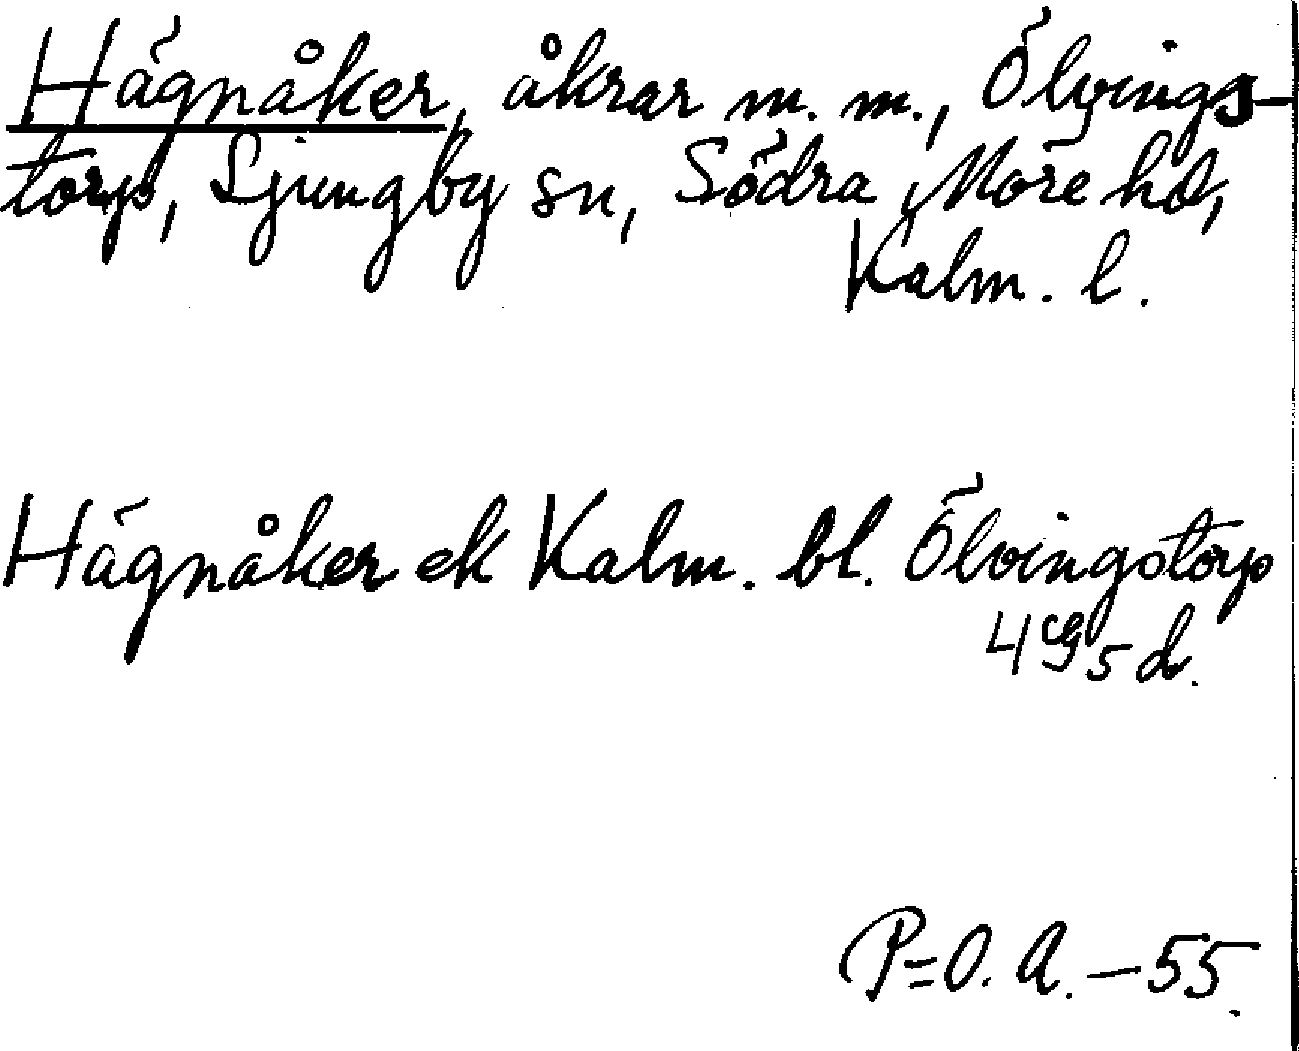 Hägnåker, åkrar m. m., Ölvings-
torp, Ljungby sn, Södra Möre hd,
Kalm. l.
Hägnåker ek Kalm. bl. Ölvingstorp
4 cg 5 d.
P=O. A. – 55.